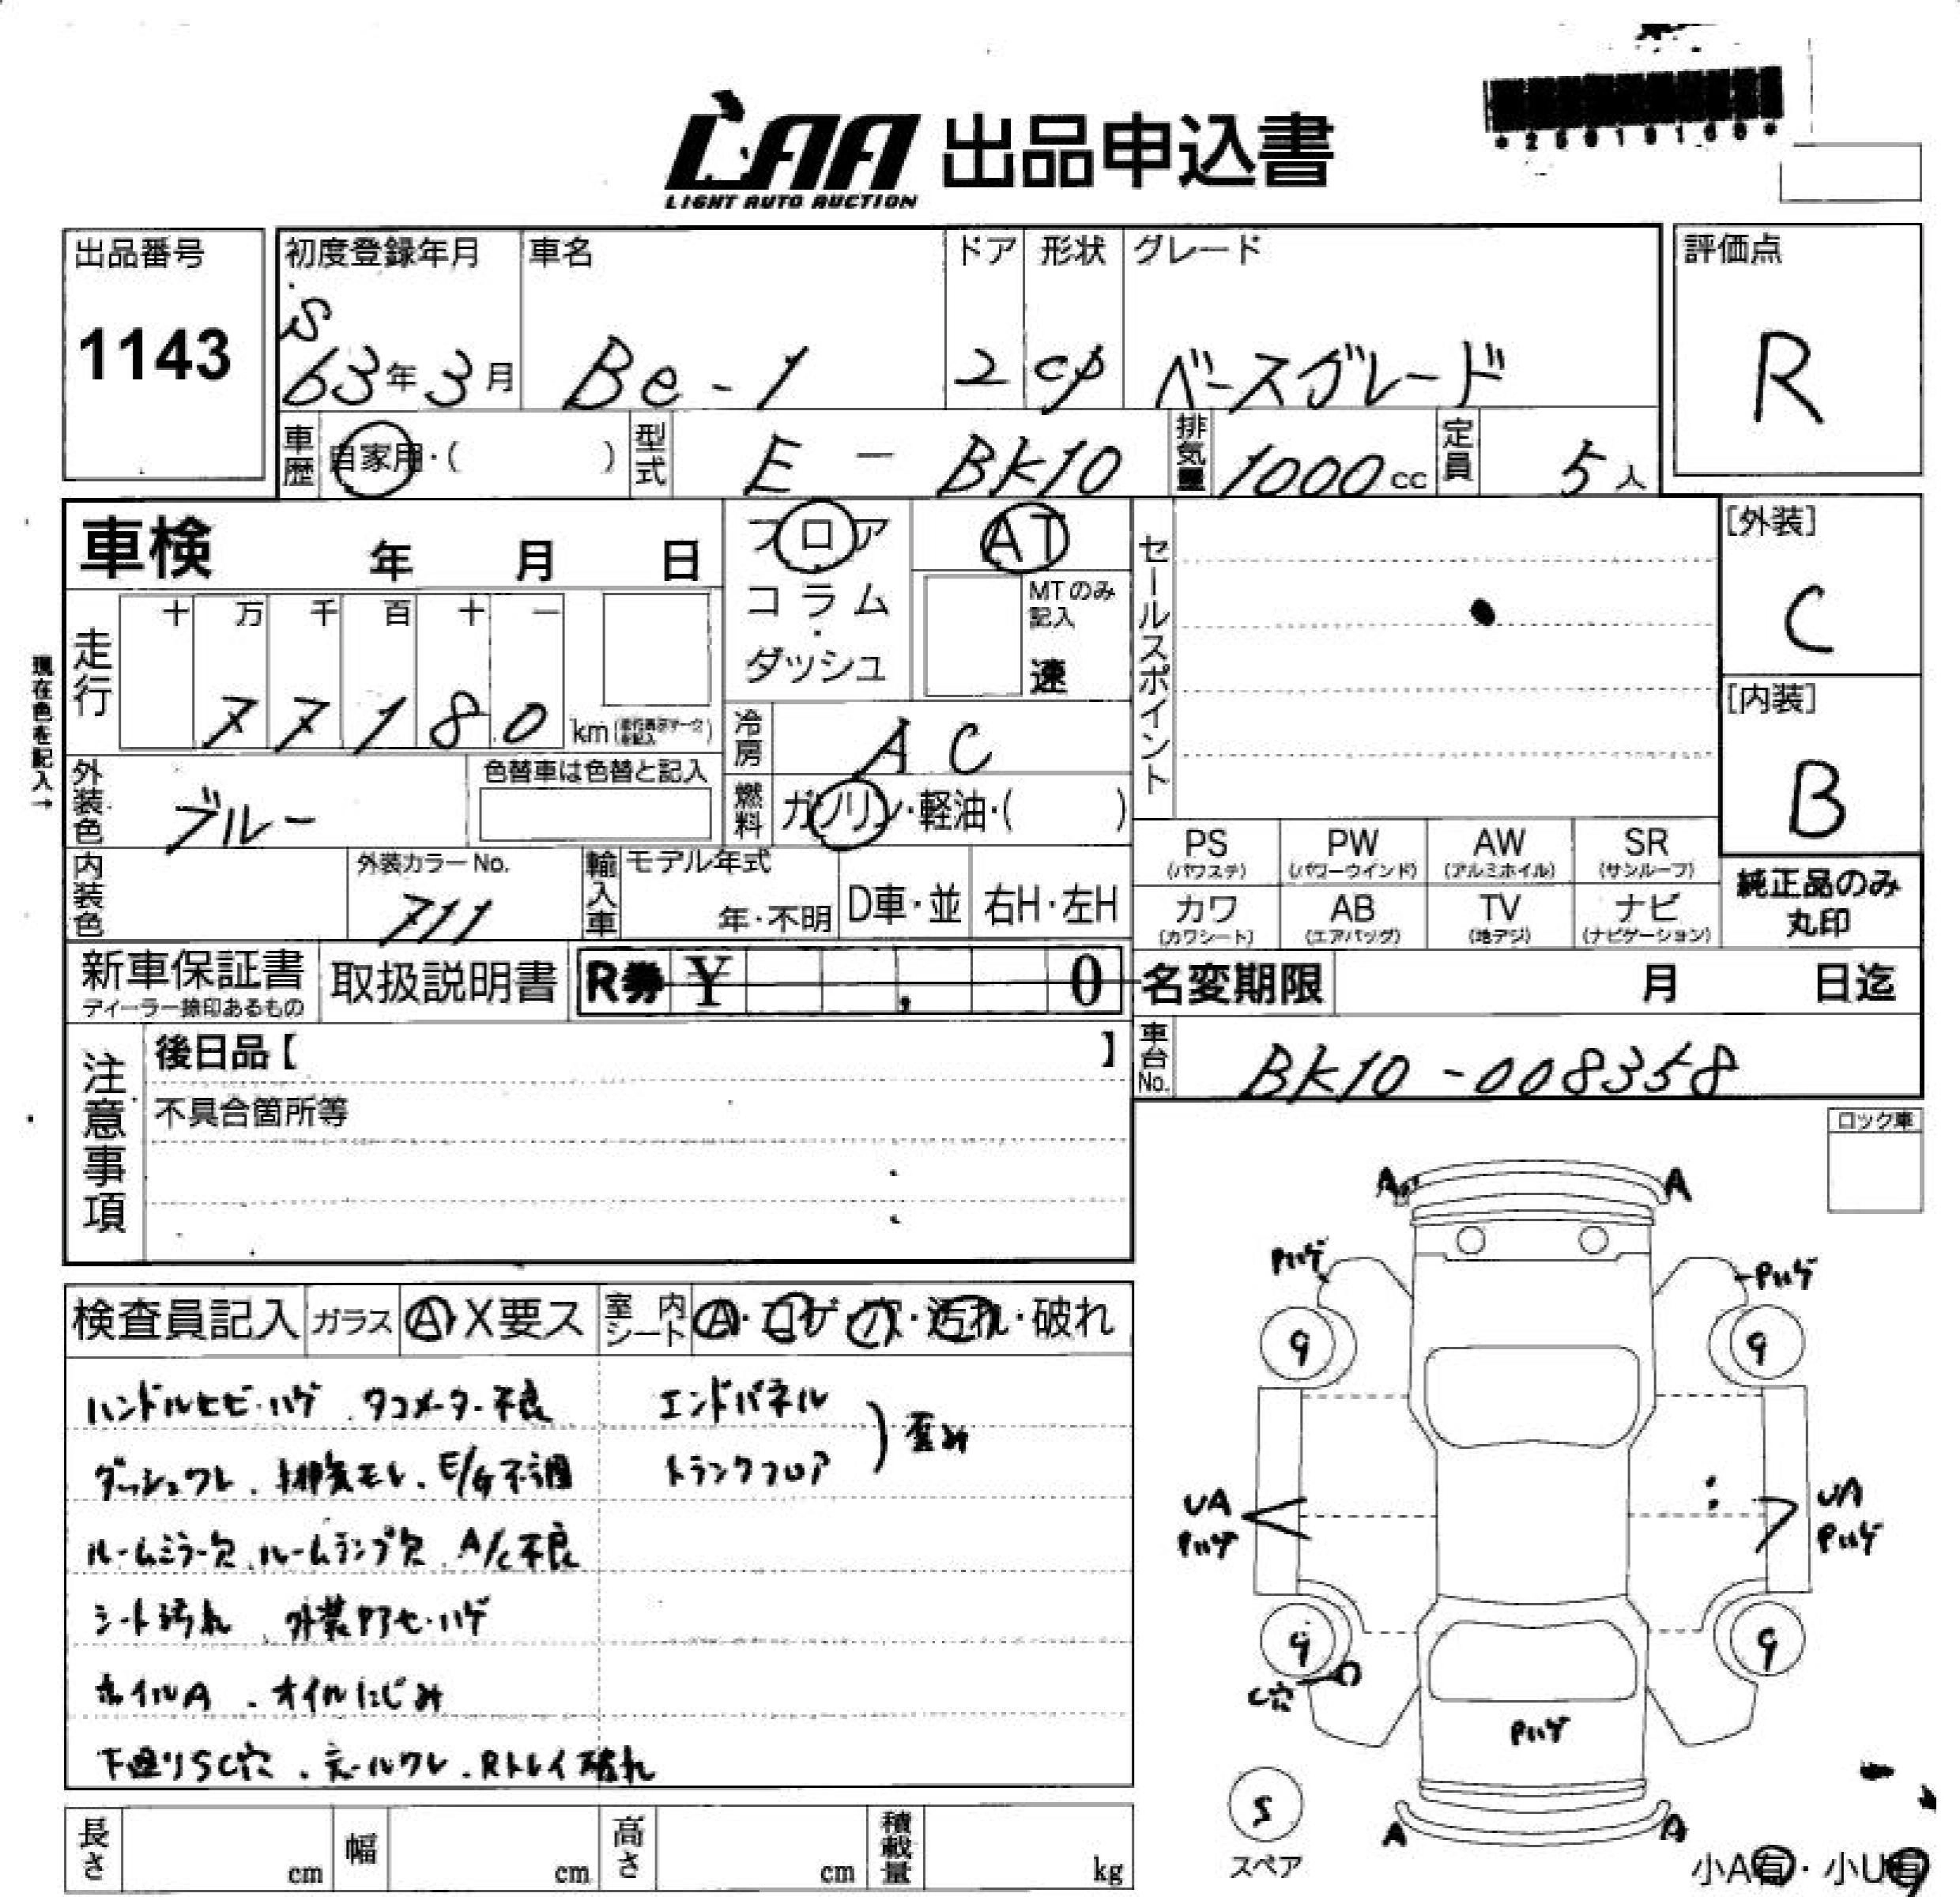 LAA 出品申込書
LIGHT AUTO AUCTION
出品番号
1143
初度登録年月
S
63年3月
車名
Be-1
ドア
2
形状
cp
グレード
ベースグレード
評価点
R
車歴
自家用・( )
型式
E - BK10
排気量
1000cc
定員
5人
車検 年 月 日
フロア
コラム
・
ダッシュ
AT
MTのみ
記入
速
セールスポイント
[外装]
C
[内装]
B
現在色を記入→
走行
十 万 千 百 十 一
7 7 1 8 0 km
冷房
AC
外装色
ブルー
色替車は色替と記入
燃料
ガソリン・軽油・( )
内装色
外装カラーNo.
711
輸入車
モデル年式
年・不明
D車・並
右H・左H
PS
(パワステ)
PW
(パワーウインド)
AW
(アルミホイル)
SR
(サンルーフ)
カワ
(カワシート)
AB
(エアバッグ)
TV
(地デジ)
ナビ
(ナビゲーション)
純正品のみ
丸印
新車保証書
ディーラー捺印あるもの
取扱説明書
R券 ¥ , 0
名変期限 月 日迄
車台No.
BK10-008358
注意事項
後日品【 】
不具合箇所等
ロック車
検査員記入
ガラス
A・X要ス
室内シート
A・コゲ・穴・汚れ・破れ
ハンドルヒビ・ハゲ、タコメーター不良
エンドパネル
トランクフロア
歪み
ダッシュワレ、排気モレ、E/G不調
ルームミラー欠、ルームランプ欠、A/C不良
シート汚れ、外装Pアセハゲ
ホイルA、オイルにじみ
下廻りSC穴、テールワレ、Rトレイ破れ
A
A
Pハゲ
Pハゲ
9
9
UA
Pハゲ
UA
Pハゲ
9
9
C穴
Pハゲ
S
スペア
A
A
小A有・小U有
長さ cm
幅 cm
高さ cm
積載量 kg